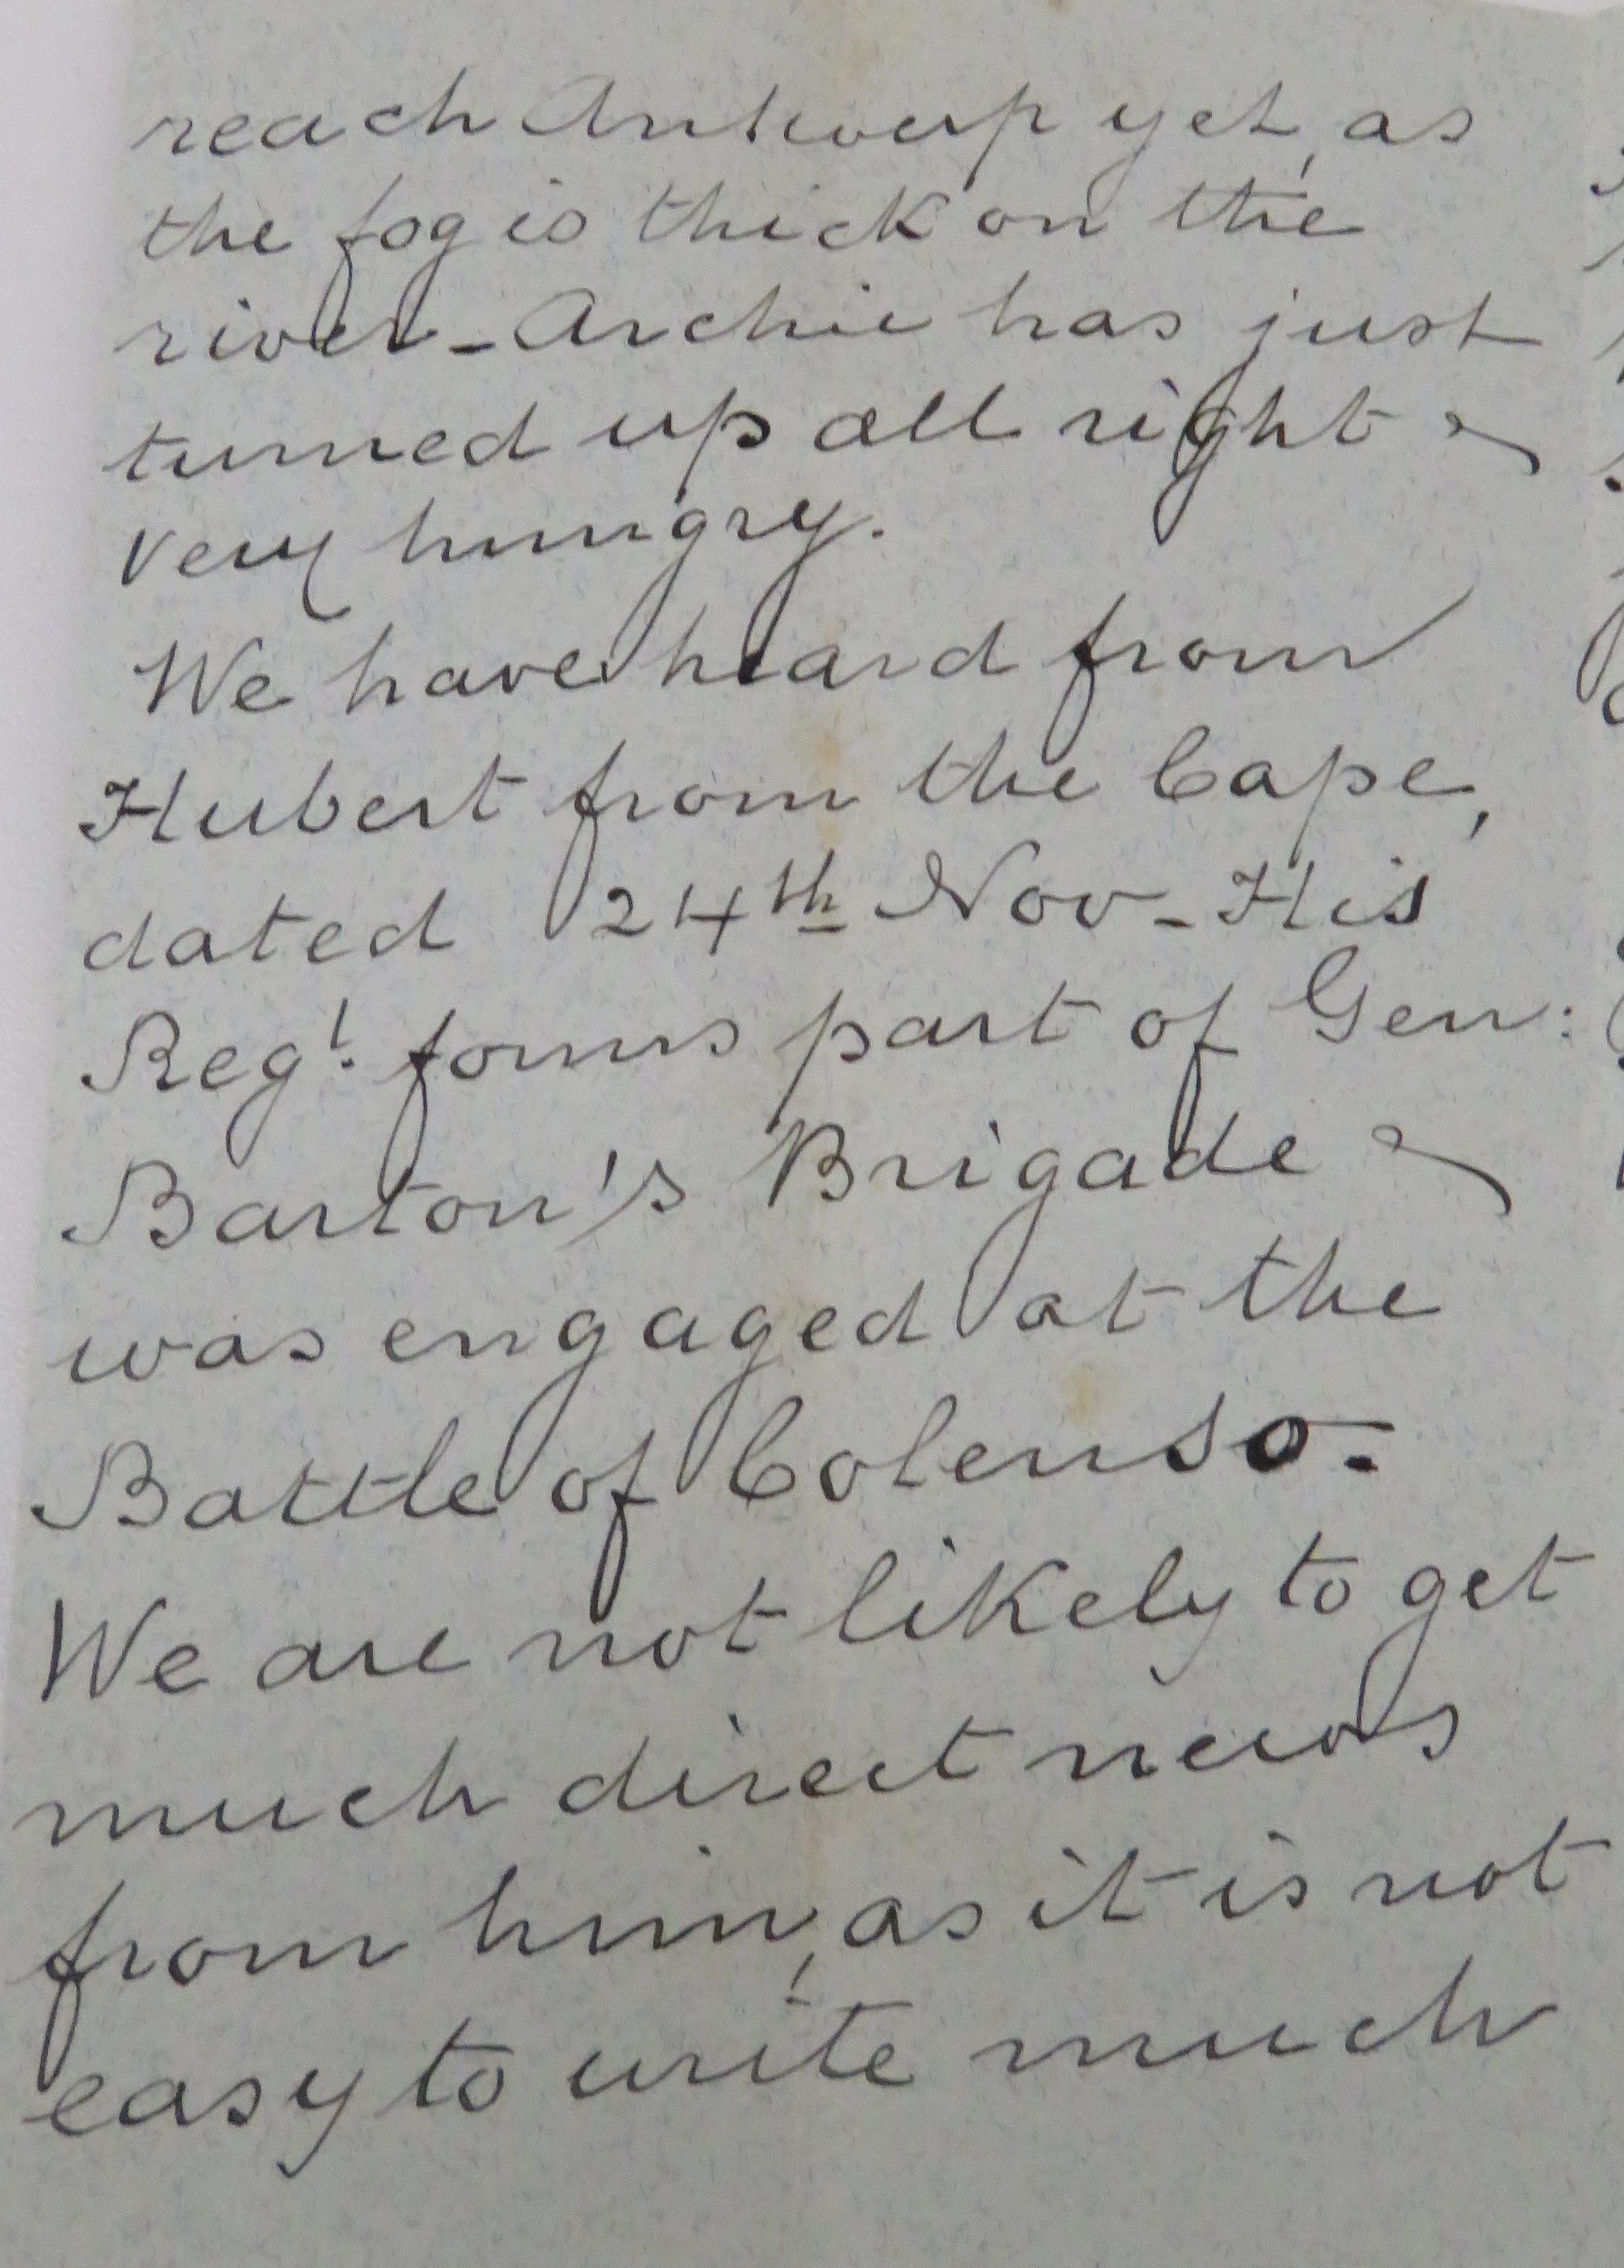 reach Antwerp yet, as
the fog is thick on the
river - Archie has just
turned up all right &
very hungry.
We have heard from
Hubert from the Cape,
dated 24th Nov - His
Regt. forms part of Gen:
Barton's Brigade &
was engaged at the
Battle of Colenso -
We are not likely to get
much direct news
from him, as it is not
easy to write much